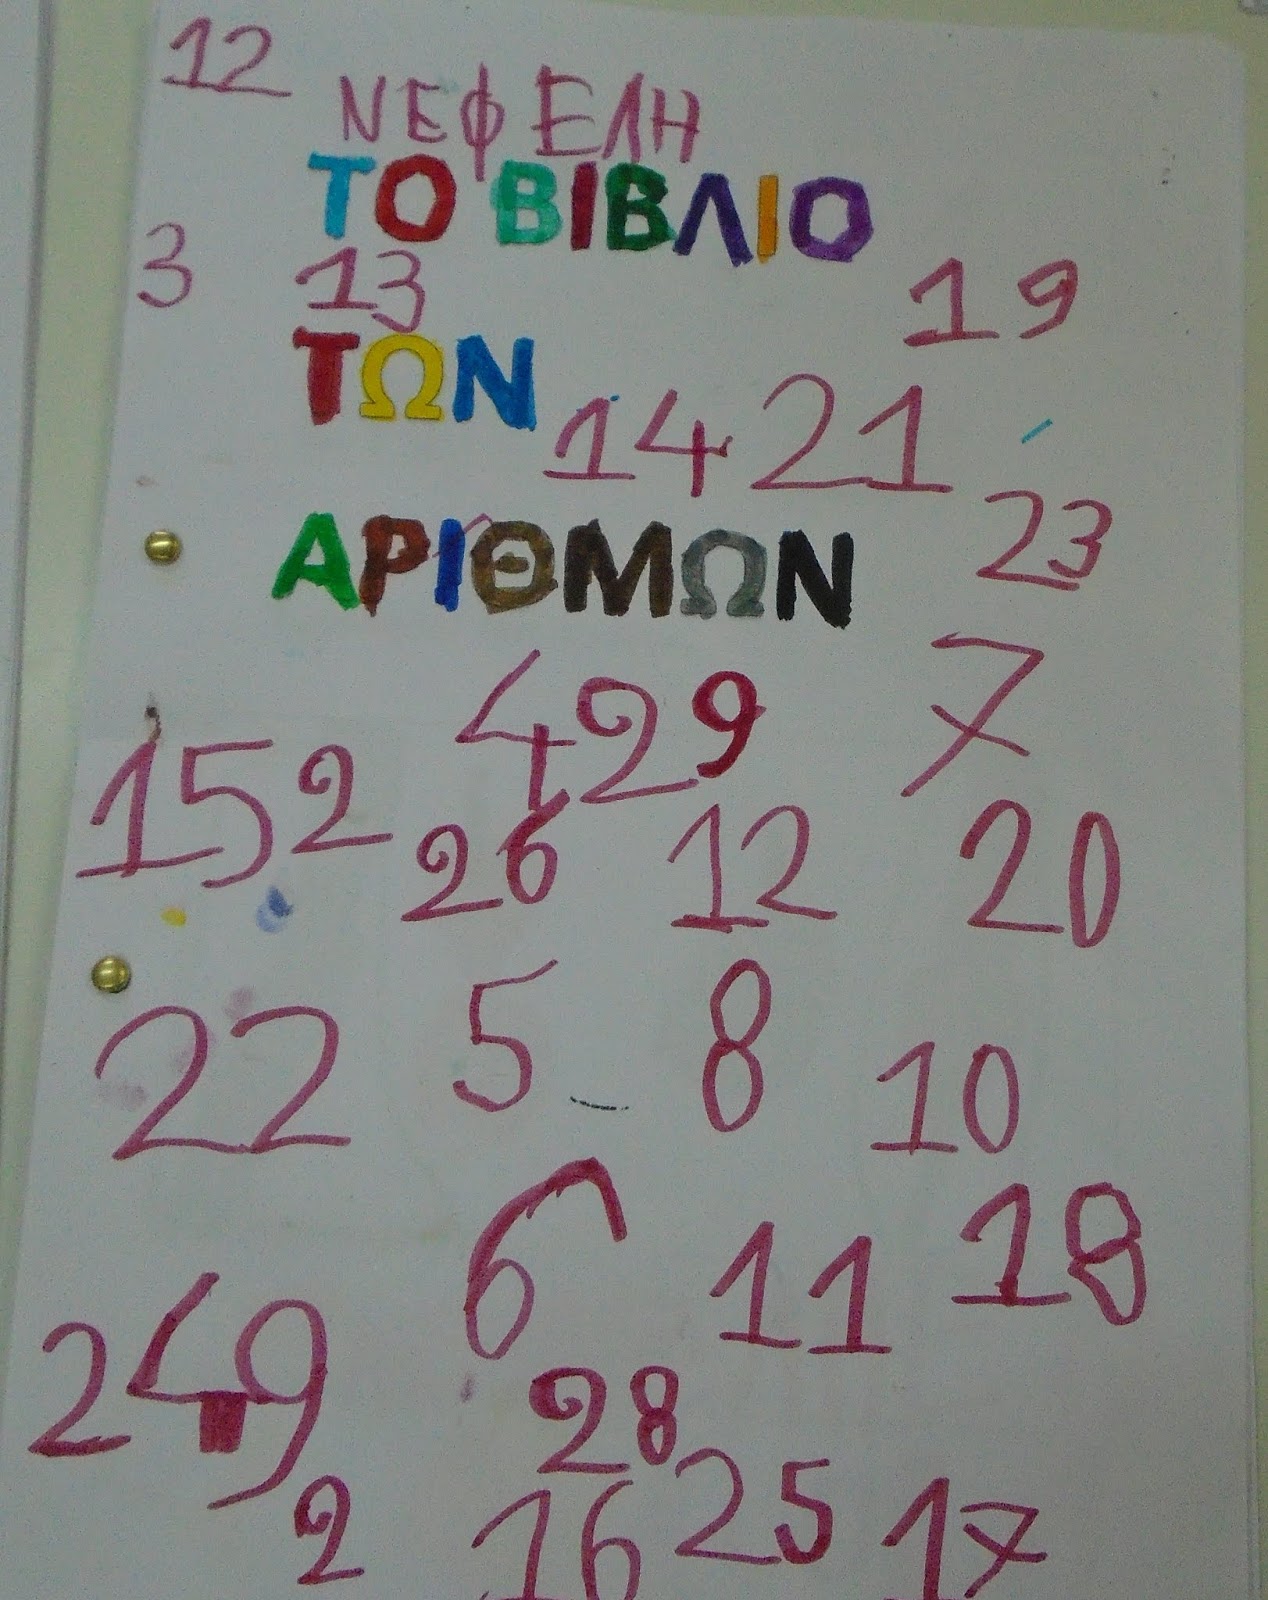 12
ΝΕΦΕΛΗ
ΤΟ ΒΙΒΛΙΟ
3 13 19
ΤΩΝ
14 21
23
ΑΡΙΘΜΩΝ
4 29 7
15 2
26 12 20
22 5 8 10
6 11 18
24 9
28
2 16 25 17